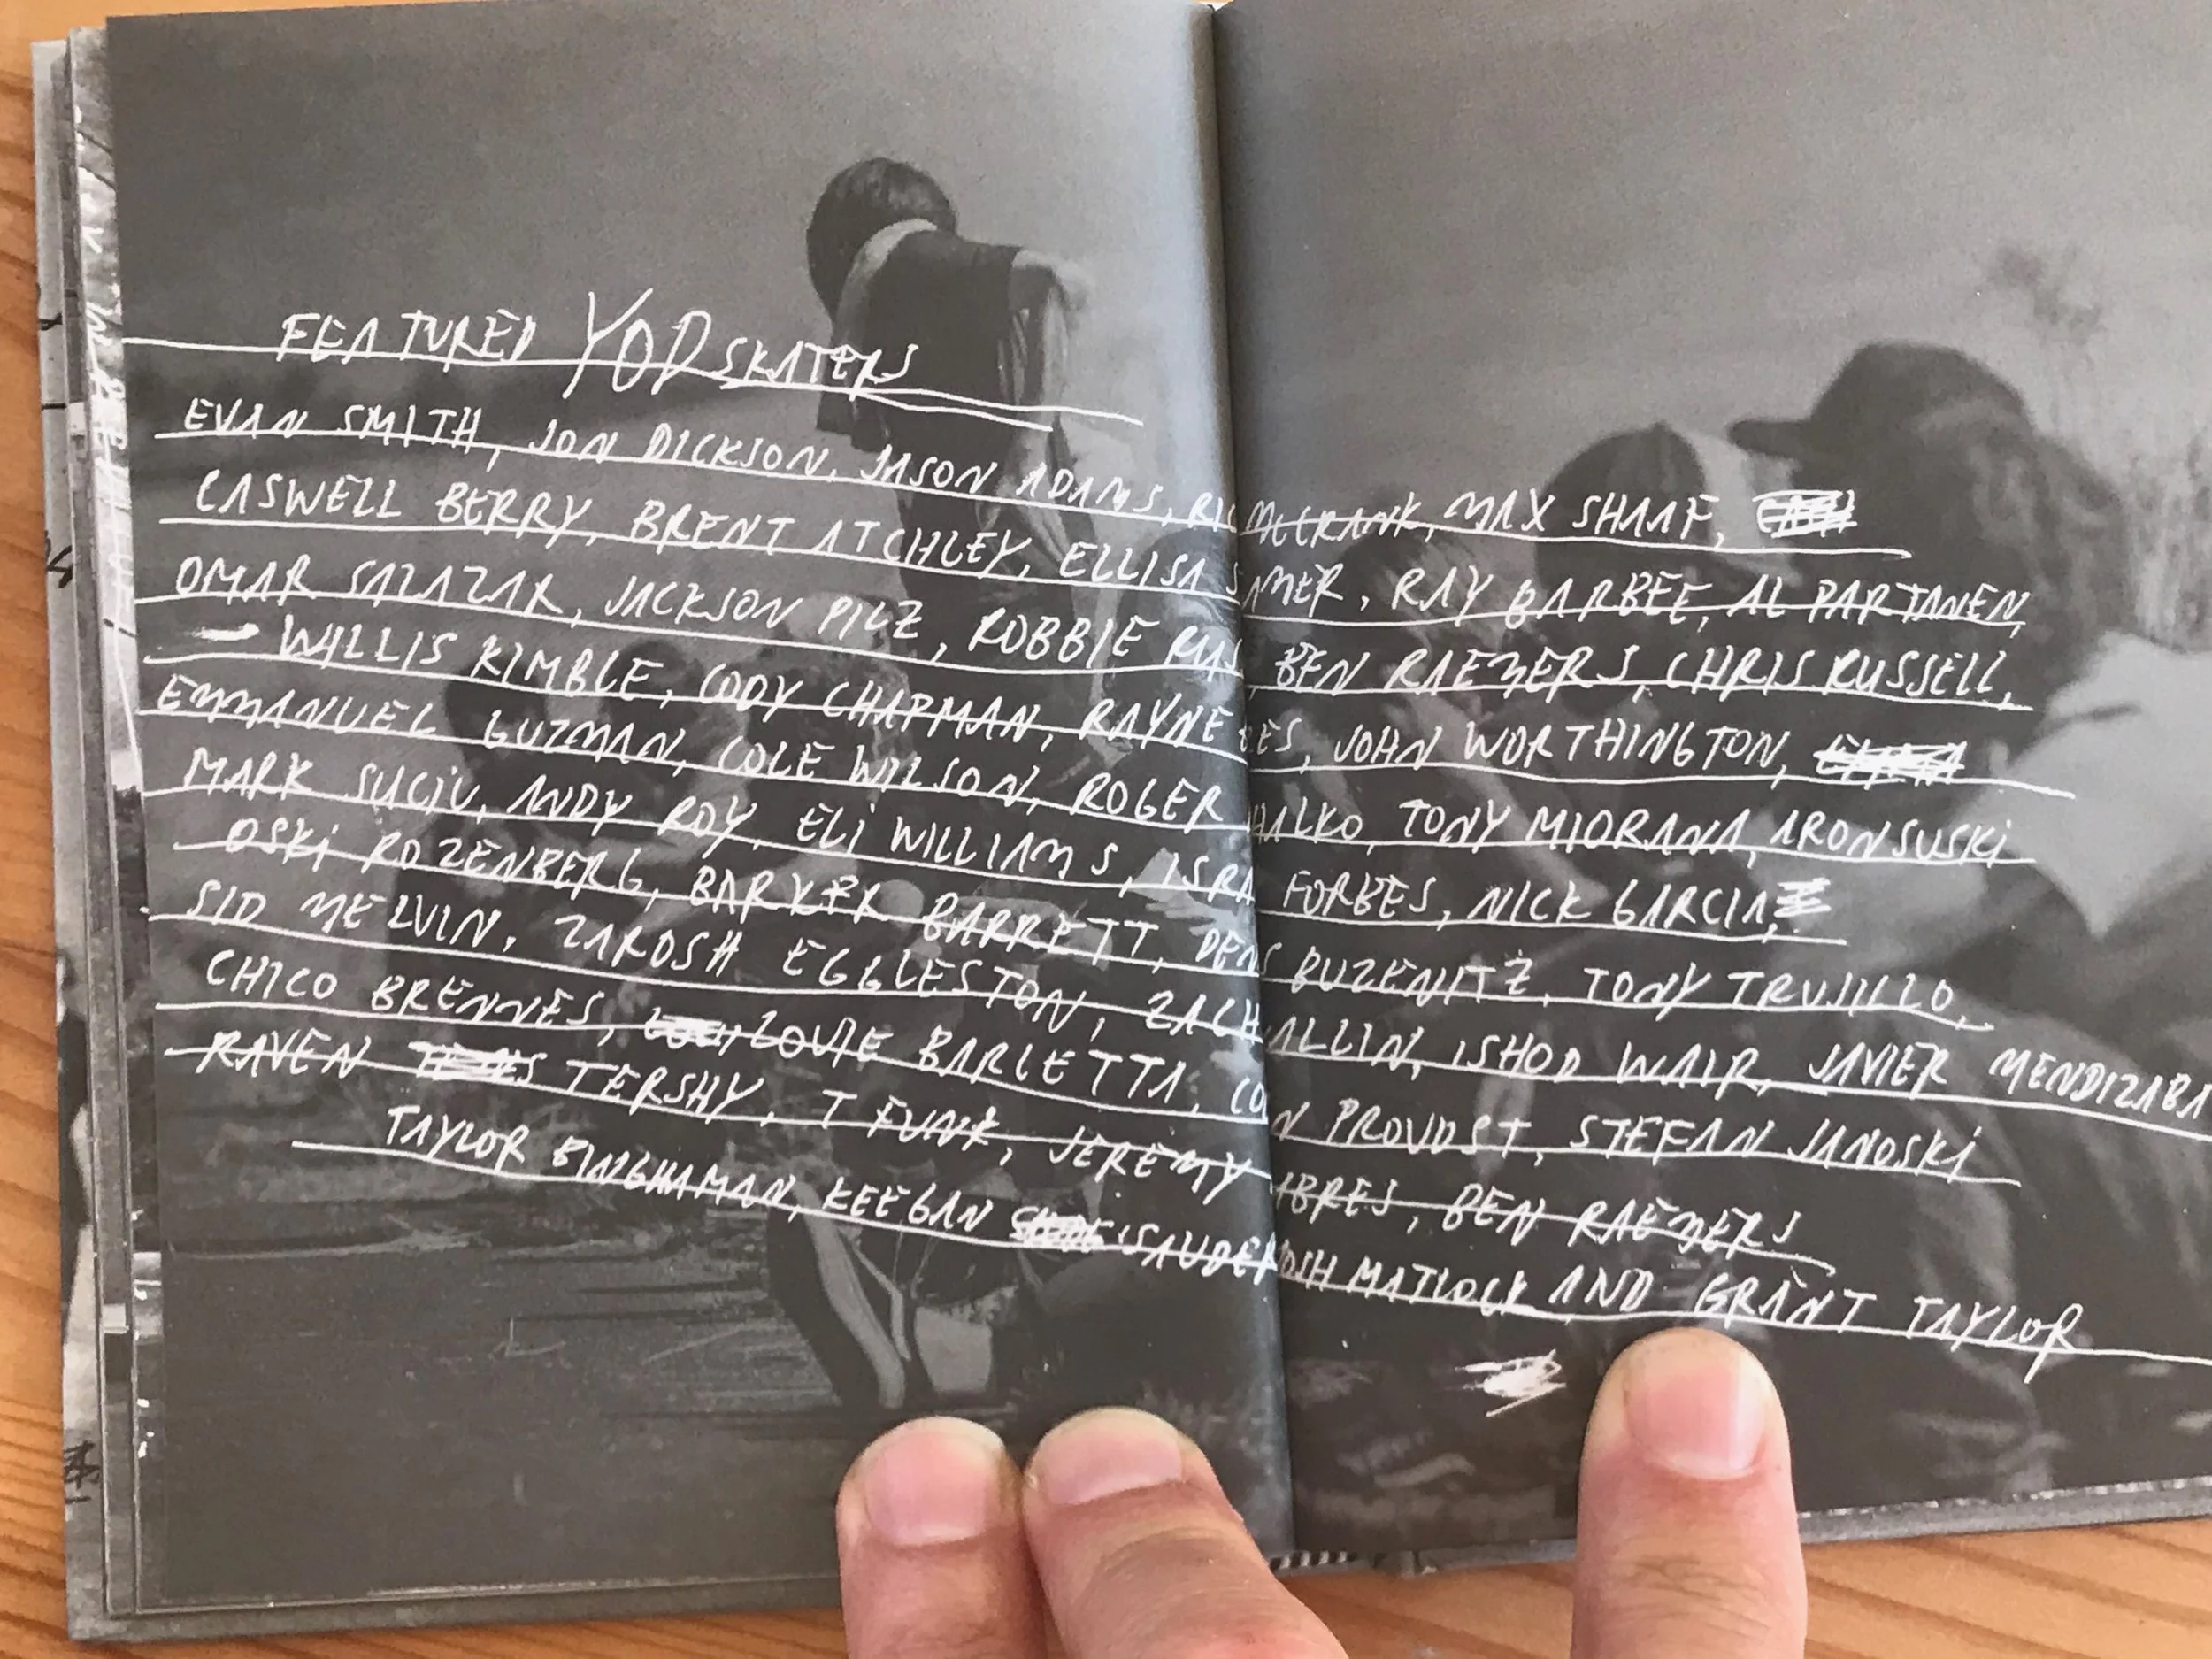 FEATURED YOD SKATERS
EVAN SMITH, JON DICKSON, JASON ADAMS, MCCRANK, MAX SHAAF,
CASWELL BERRY, BRENT ATCHLEY, ELLISA SAMER, RAY BARBEE, AL PARTANEN,
OMAR SALAZAR, JACKSON PILZ, ROBBIE BEN RAEMERS, CHRIS RUSSELL,
WILLIS KIMBLE, CODY CHAPMAN, RAYNE JOHN WORTHINGTON,
EMMANUEL GUZMAN, COLE WILSON, ROGER TONY MIORANA, ARON SUSKI
MARK SUCIU, ANDY ROY, ELI WILLIAMS, FORBES, NICK GARCIA,
OSKI ROZENBERG, BARKER BARRETT, BUZENITZ, TONY TRUJILLO,
SID MELVIN, ZAROSH EGGLESTON, ZACH ALLIN, ISHOD WAIR, JAVIER MENDIZABA
CHICO BRENNES, LOUIE BARLETTA, PROVOST, STEFAN JANOSKI
RAVEN TERSHY, T FUNK, JEREMY BEN RAEMERS
TAYLOR BINGHAMAN, KEEGAN SAUDER JOSH MATLOCK AND GRANT TAYLOR